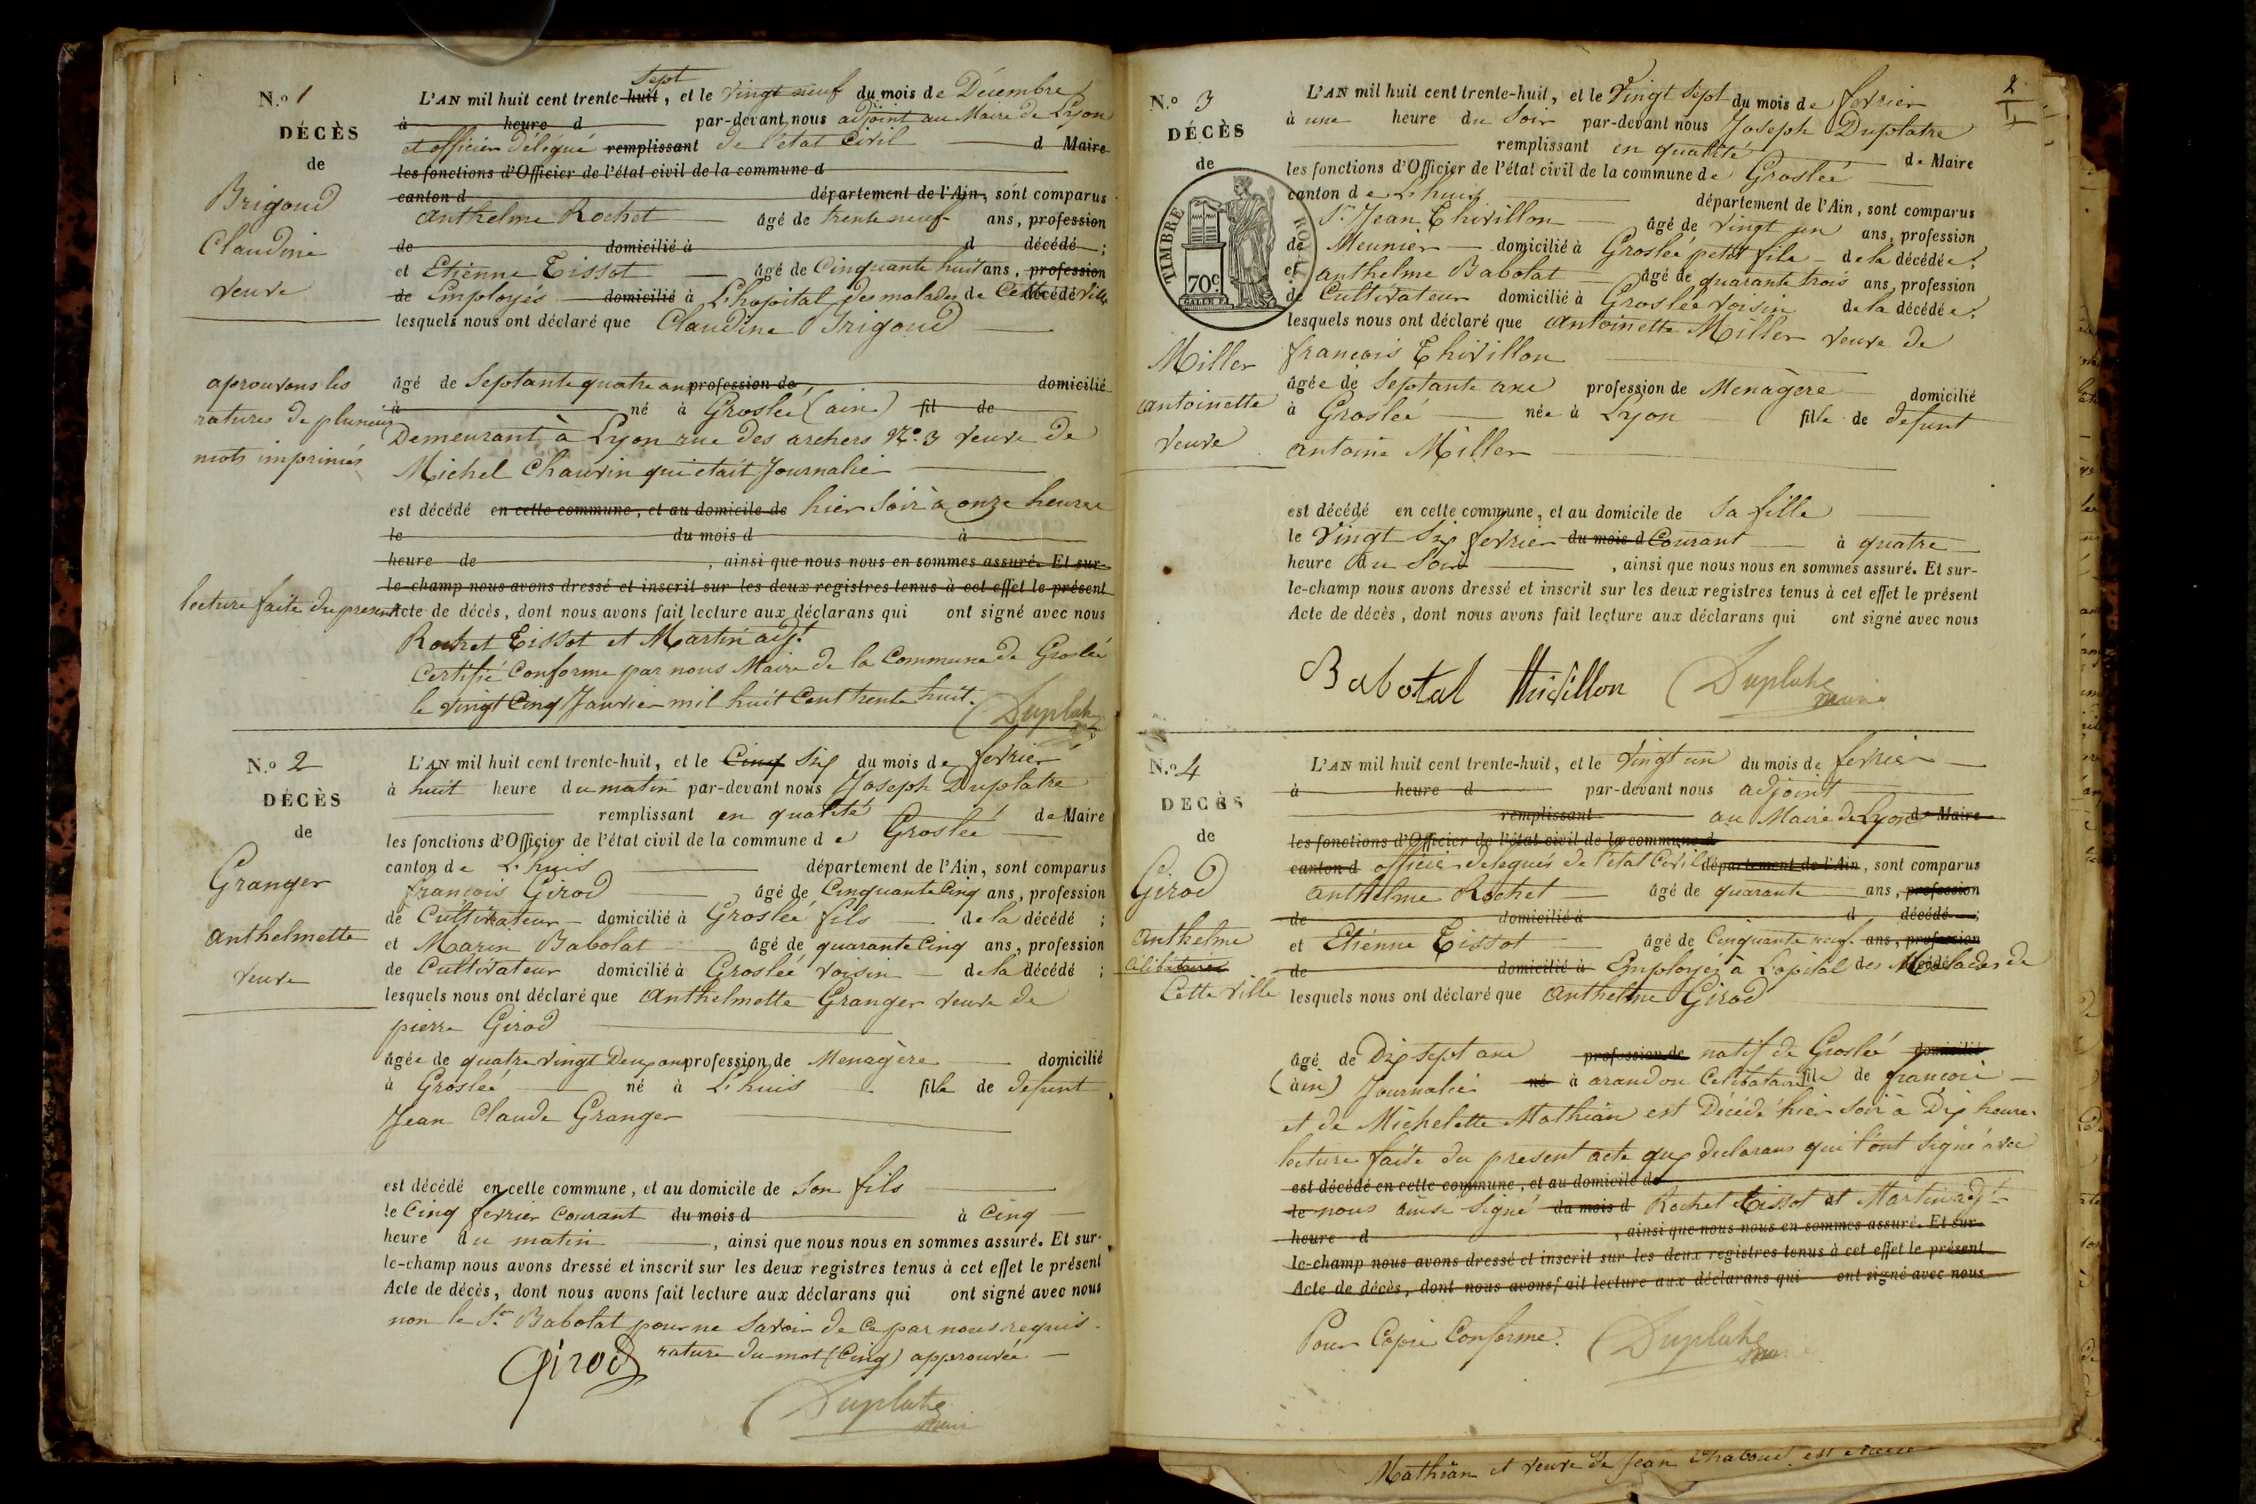 N.o 1
DÉCÈS
de
Brigoud
Claudine
veuve
aprouvons les
ratures de plusieurs
mots imprimés
lecture faite du present
L'AN mil huit cent trente-huit sept, et le vingt neuf du mois de Décembre
à heure d par-devant nous adjoint au Maire de Lyon
et officier délégué remplissant de l'état Civil d Maire
les fonctions d'Officier de l'état civil de la commune d
canton d département de l'Ain, sont comparus
anthelme Rochet âgé de trente neuf ans, profession
de domicilié à d décédé ;
et Etienne Tissot âgé de Cinquante huit ans, profession
de Employés domicilié à L'hopital des malades de Cette décédé ville
lesquels nous ont déclaré que Claudine Brigoud
âgé de Septante quatre ans profession de domicilié
à né à Groslée (ain) fil de
Demeurant à Lyon rue des archers N.o 3 veuve de
Michel Chauvin qui etait Journalier
est décédé en cette commune, et au domicile de hier soir à onze heures
le du mois d à
heure de , ainsi que nous nous en sommes assuré. Et sur-
le-champ nous avons dressé et inscrit sur les deux registres tenus à cet effet le présent
Acte de décès, dont nous avons fait lecture aux déclarans qui ont signé avec nous
Rochet Tissot et Martin adjt
Certifié Conforme par nous Maire de la Commune de Groslée
le vingt Cinq Janvier mil huit Cent trente huit. Duplatre
N.o 2
DÉCÈS
de
Granger
anthelmette
veuve
L'AN mil huit cent trente-huit, et le Cinq Six du mois de fevrier
à huit heure du matin par-devant nous Joseph Duplatre
remplissant en qualité de Maire
les fonctions d'Officier de l'état civil de la commune de Groslée
canton de L'huis département de l'Ain, sont comparus
francois Girod âgé de Cinquante Cinq ans, profession
de Cultivateur domicilié à Groslée fils de la décédé ;
et Marin Babolat âgé de quarante Cinq ans, profession
de Cultivateur domicilié à Groslée voisin de la décédé ;
lesquels nous ont déclaré que Anthelmette Granger veuve de
pierre Girod
âgée de quatre vingt Deux ans profession de Menagère domicilié
à Groslée né à L'huis fille de defunt
Jean Claude Granger
est décédé en cette commune, et au domicile de Son fils
le Cinq fevrier Courant du mois d à Cinq
heure du matin , ainsi que nous nous en sommes assuré. Et sur-
le-champ nous avons dressé et inscrit sur les deux registres tenus à cet effet le présent
Acte de décès, dont nous avons fait lecture aux déclarans qui ont signé avec nous
non le Sr. Babolat pour ne Savoir de Ce par nous requis.
rature du mot (Cinq) approuvée
Girod
Duplatre
maire
2
N.o 3
DÉCÈS
de
TIMBRE ROYAL
70c
Miller
antoinette
veuve
L'AN mil huit cent trente-huit, et le Vingt Sept du mois de fevrier
à une heure du Soir par-devant nous Joseph Duplatre
remplissant en qualité de Maire
les fonctions d'Officier de l'état civil de la commune de Groslée
canton de L'huis département de l'Ain, sont comparus
Sr. Jean Thivillon âgé de vingt un ans, profession
de Meunier domicilié à Groslée petit fils de la décédée ;
et anthelme Babolat âgé de quarante trois ans, profession
de Cultivateur domicilié à Groslée voisin de la décédée ;
lesquels nous ont déclaré que antoinette Miller veuve de
francois Thivillon
âgée de Septante ans profession de Menagère domicilié
à Groslée née à Lyon fille de defunt
antoine Miller
est décédé en cette commune, et au domicile de Sa fille
le Vingt Six fevrier du mois d Courant à quatre
heure du Soir , ainsi que nous nous en sommes assuré. Et sur-
le-champ nous avons dressé et inscrit sur les deux registres tenus à cet effet le présent
Acte de décès, dont nous avons fait lecture aux déclarans qui ont signé avec nous
Babotal thivillon Duplatre
maire
N.o 4
DÉCÈS
de
Girod
Anthelme
Célibataire
Cette ville
L'AN mil huit cent trente-huit, et le Vingt un du mois de fevrier
à heure d par-devant nous adjoint
remplissant au Maire de Lyon d Maire
les fonctions d'Officier de l'état civil de la commune d
canton d officier delegués de l'état Civil département de l'Ain, sont comparus
Anthelme Rochet âgé de quarante ans, profession
de domicilié à d décédé ;
et Etiénne Tissot âgé de Cinquante neuf ans, profession
de domicilié à Employés à Lopital des Malades décédé de
lesquels nous ont déclaré que Anthelme Girod
âgé de Dix sept ans profession de natif de Groslée domicilié
(ain) Journalié né à arandon Celibataire fils de francois
et de Michelette Mathian est Décédé hier soir à Dix heures
lecture faite du present acte aux declarans qui l'ont signé avec
est décédé en cette commune, et au domicile de
le nous ainsi signé du mois d Rochet Tissot et Martin adjt
heure d , ainsi que nous nous en sommes assuré. Et sur-
le-champ nous avons dressé et inscrit sur les deux registres tenus à cet effet le présent
Acte de décès, dont nous avons fait lecture aux déclarans qui ont signé avec nous
Pour Copie Conforme. Duplatre
maire
Mathian et veuve de Jean Chaboud est